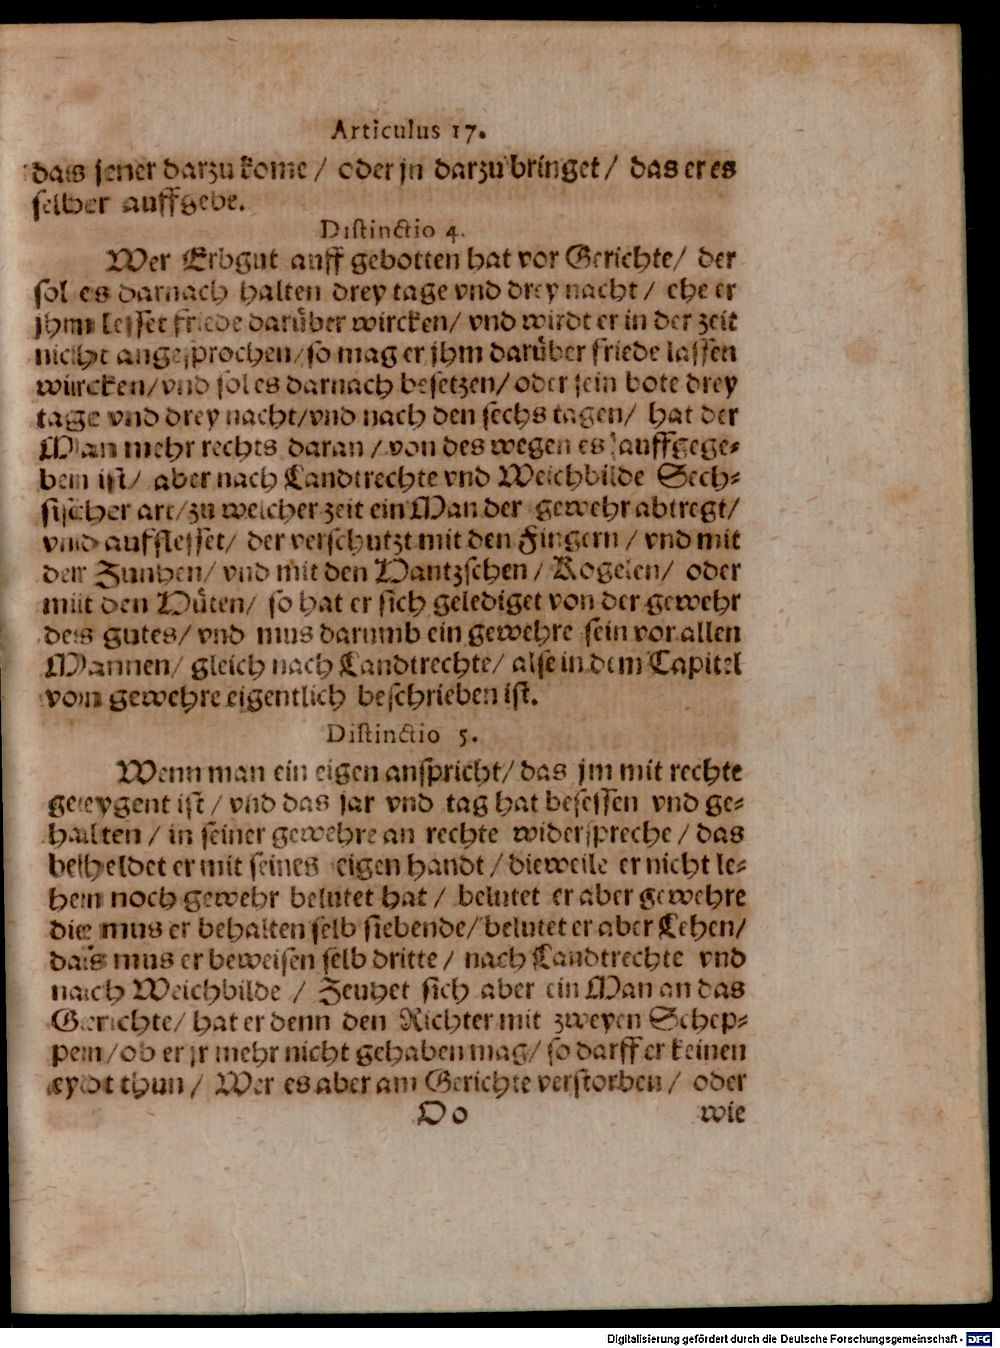 Articulus 17.
das jener darzu kome / oder jn darzu bringet / das er es
selber auffgebe.
Distinctio 4.
Wer Erbgut auff gebotten hat vor Gerichte / der
sol es darnach halten drey tage vnd drey nacht / ehe er
jhm lesset friede darüber wircken / vnd wirdt er in der zeit
nicht angesprochen / so mag er jhm darüber friede lassen
würcken / vnd sol es darnach besetzen / oder sein bote drey
tage vnd drey nacht / vnd nach den sechs tagen / hat der
Man mehr rechts daran / von des wegen es auffgege-
ben ist / aber nach Landtrechte vnd Weichbilde Sech-
sischer art / zu welcher zeit ein Man der gewehr abtregt /
vnd auflesset / der verschutzt mit den Fingern / vnd mit
der Zunhen / vnd mit den Hantzschen / Kogelen / oder
mit den Hüten / so hat er sich gelediget von der gewehr
des gutes / vnd mus darumb ein gewehre sein vor allen
Mannen / gleich nach Landtrechte / alse in dem Capitel
vom gewehre eigentlich beschrieben ist.
Distinctio 5.
Wenn man ein eigen anspricht / das jm mit rechte
geeygent ist / vnd das jar vnd tag hat besessen vnd ge-
halten / in seiner gewehre an rechte widerspreche / das
beheldet er mit seines eigen handt / dieweile er nicht le-
hen noch gewehr belutet hat / belutet er aber gewehre
die mus er behalten selb siebende / belutet er aber Lehen /
das mus er beweisen selb dritte / nach Landtrechte vnd
nach Weichbilde / Zeuhet sich aber ein Man an das
Gerichte / hat er denn den Richter mit zweyen Schep-
pen / ob er jr mehr nicht gehaben mag / so darff er keinen
eydt thun / Wer es aber am Gerichte verstorben / oder
Oo wie
Digitalisierung gefördert durch die Deutsche Forschungsgemeinschaft - DFG